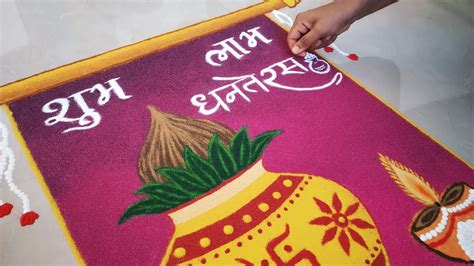 शुभ लाभ
धनतेरस